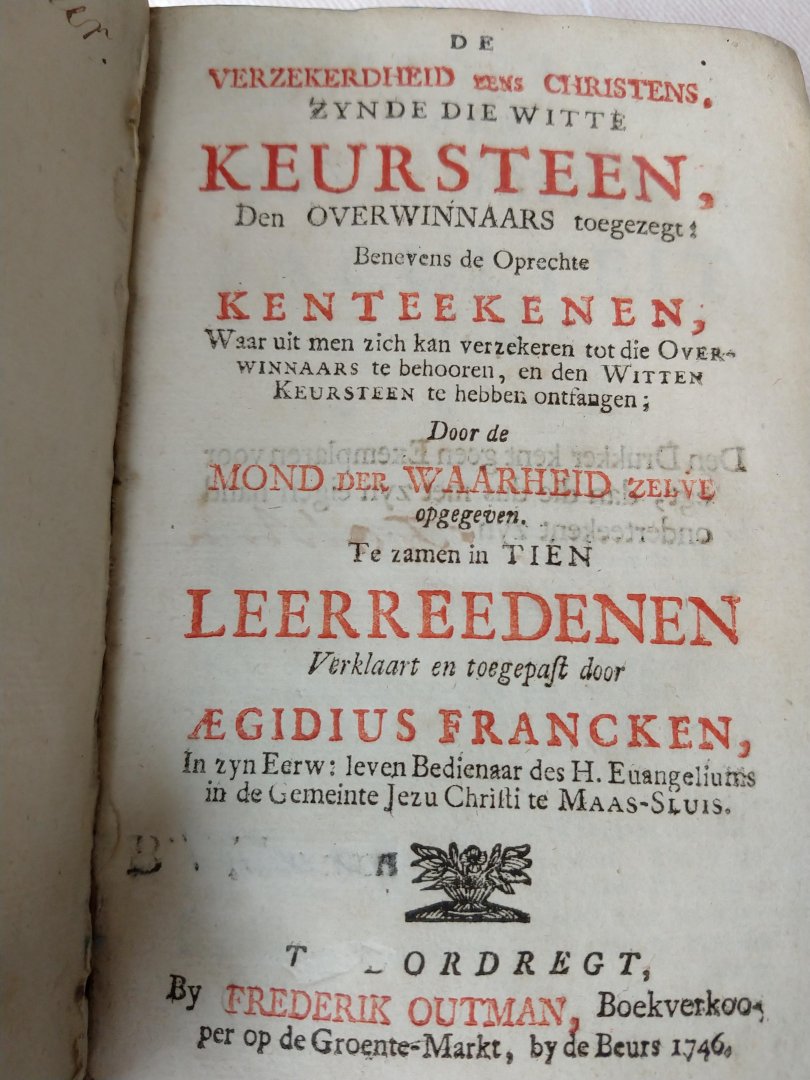 DE
VERZEKERDHEID EENS CHRISTENS.
ZYNDE DIE WITTE
KEURSTEEN,
Den OVERWINNAARS toegezegt:
Benevens de Oprechte
KENTEEKENEN,
Waar uit men zich kan verzekeren tot die OVER-
WINNAARS te behooren, en den WITTEN
KEURSTEEN te hebben ontfangen;
Door de
MOND DER WAARHEID ZELVE
opgegeven.
Te zamen in TIEN
LEERREEDENEN
Verklaart en toegepast door
ÆGIDIUS FRANCKEN,
In zyn Eerw: leven Bedienaar des H. Euangeliums
in de Gemeinte Jezu Christi te MAAS-SLUIS.
T DORDREGT,
By FREDERIK OUTMAN, Boekverkoo-
per op de Groente-Markt, by de Beurs 1746.